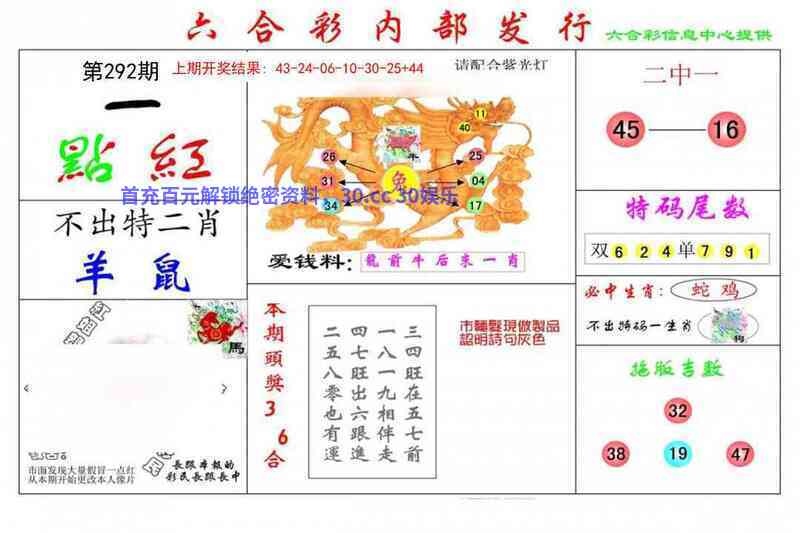 六合彩内部发行
六合彩信息中心提供
第292期
上期开奖结果：43-24-06-10-30-25+44
请配合紫光灯
一
點 紅
不出特二肖
羊 鼠
馬
市面发现大量假冒一点红
从本期开始更改本人像片
長跟本報的
彩民長跟長中
11
40
羊
26
25
31
兔
04
34
17
首充百元解锁绝密资料，30.cc 30娱乐
爱钱料：
龍前牛后来一肖
本期頭獎36合
三四旺在五七前
一八一九相伴走
四七旺出六跟進
二五八零也有運
市輔髮現做製品
認明詩句灰色
二中一
45
16
特码尾数
双 6 2 4 单 7 9 1
必中生肖：
蛇 鸡
不出特码一生肖
狗
拖版吉数
32
38
19
47